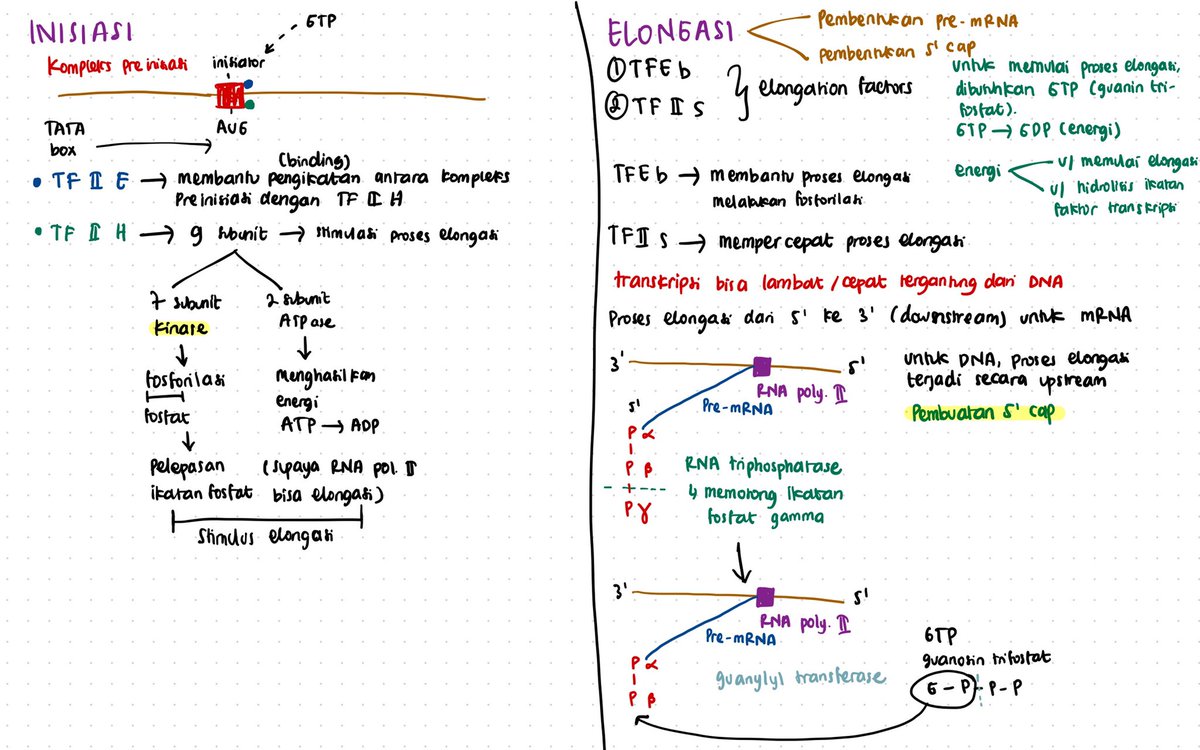 INISIASI
GTP
Kompleks Preinisiasi
initiator
TATA
box
AUG
(binding)
• TF II E → membantu pengikatan antara kompleks
Preinisiasi dengan TF II H
• TF II H → 9 subunit → stimulasi proses elongasi
7 subunit
kinase
2 subunit
ATPase
fosforilasi
fosfat
Menghasilkan
energi
ATP → ADP
Pelepasan
ikatan fosfat
(supaya RNA pol. II
bisa elongasi)
Stimulus elongasi
ELONGASI
Pembentukan pre-mRNA
pembentukan 5' cap
① TFEb
② TF II S
elongation factors
untuk memulai proses elongasi,
dibutuhkan GTP (guanin tri-
fosfat).
GTP → GDP (energi)
energi
u/ memulai elongasi
u/ hidrolisis ikatan
faktor transkripsi
TFEb → membantu proses elongasi
melakukan fosforilasi
TFII S → mempercepat proses elongasi
transkripsi bisa lambat/cepat tergantung dari DNA
Proses elongasi dari 5' ke 3' (downstream) untuk mRNA
3'
5'
RNA poly. II
Pre-mRNA
untuk DNA, proses elongasi
terjadi secara upstream
Pembuatan 5' cap
5'
P α
P β
P γ
RNA triphosphatase
↳ memotong ikatan
fosfat gamma
3'
5'
RNA poly. II
Pre-mRNA
P α
P β
guanylyl transferase
GTP
guanosin trifosfat
G - P - P - P